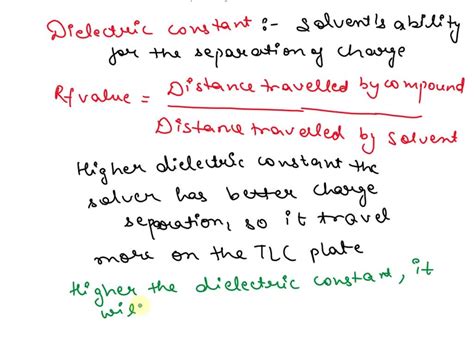 Dielectric constant :- Solvent's ability
for the separation of charge
Rf value = Distance travelled by compound
Distance travelled by solvent
Higher dielectric constant the
solver has better charge
separation, so it travel
more on the TLC plate
Higher the dielectric constant, it
wil